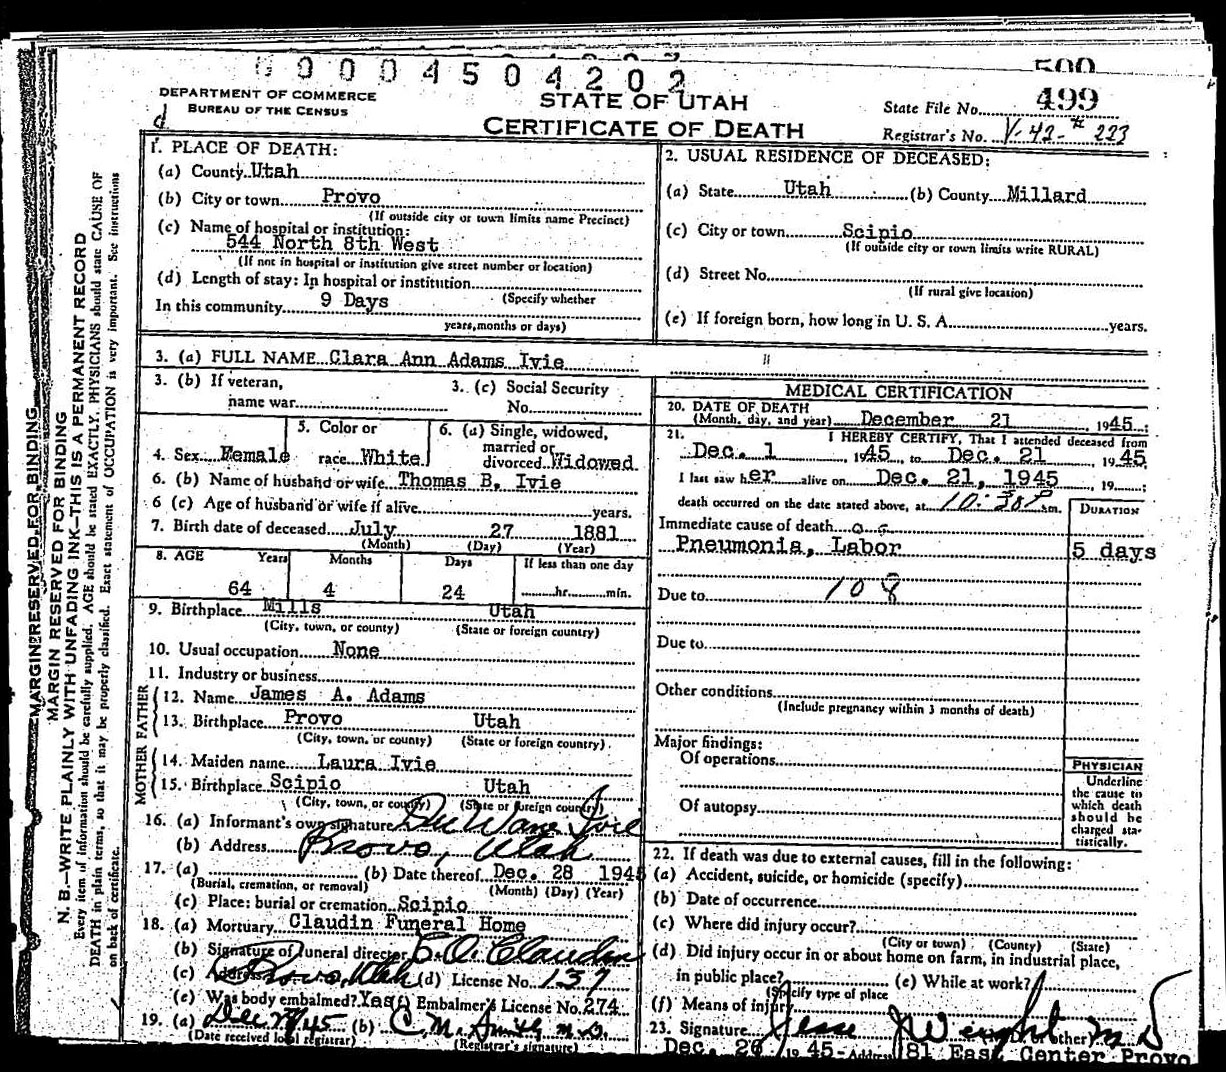 00004504202
500
DEPARTMENT OF COMMERCE
BUREAU OF THE CENSUS
d
STATE OF UTAH
CERTIFICATE OF DEATH
State File No. 499
Registrar's No. V-42-# 223
1. PLACE OF DEATH:
(a) County Utah
(b) City or town Provo
(If outside city or town limits name Precinct)
(c) Name of hospital or institution:
544 North 8th West
(If not in hospital or institution give street number or location)
(d) Length of stay: In hospital or institution
(Specify whether
In this community 9 Days
years, months or days)
2. USUAL RESIDENCE OF DECEASED:
(a) State Utah (b) County Millard
(c) City or town Scipio
(If outside city or town limits write RURAL)
(d) Street No.
(If rural give location)
(e) If foreign born, how long in U. S. A. years.
3. (a) FULL NAME Clara Ann Adams Ivie
3. (b) If veteran,
name war
3. (c) Social Security
No.
4. Sex Female
5. Color or
race White
6. (a) Single, widowed,
married or
divorced Widowed
6. (b) Name of husband or wife Thomas B. Ivie
6 (c) Age of husband or wife if alive years.
7. Birth date of deceased July 27 1881
(Month) (Day) (Year)
8. AGE Years Months Days If less than one day
64 4 24 hr. min.
9. Birthplace Mills Utah
(City, town, or county) (State or foreign country)
10. Usual occupation None
11. Industry or business
FATHER
12. Name James A. Adams
13. Birthplace Provo Utah
(City, town, or county) (State or foreign country)
MOTHER
14. Maiden name Laura Ivie
15. Birthplace Scipio Utah
(City, town, or county) (State or foreign country)
16. (a) Informant's own signature Ivie
(b) Address Provo, Utah
17. (a) (b) Date thereof Dec. 28 1945
(Burial, cremation, or removal) (Month) (Day) (Year)
(c) Place: burial or cremation Scipio
18. (a) Mortuary Claudin Funeral Home
(b) Signature of funeral director C. O. Claudin
(c) Address Provo, Utah (d) License No. 137
(e) Was body embalmed? Yes (f) Embalmer's License No. 274
19. (a) Dec 28/45 (b) C. M. Smith M.D.
(Date received local registrar) (Registrar's signature)
MEDICAL CERTIFICATION
20. DATE OF DEATH
(Month, day, and year) December 21 1945
21. I HEREBY CERTIFY, That I attended deceased from
Dec. 1 1945, to Dec. 21 1945
I last saw her alive on Dec. 21, 1945, 19
death occurred on the date stated above, at 10:30P m.
DURATION
Immediate cause of death
Pneumonia, Labor 5 days
Due to 108
Due to
Other conditions
(Include pregnancy within 3 months of death)
Major findings:
Of operations
Of autopsy
PHYSICIAN
Underline
the cause to
which death
should be
charged sta-
tistically.
22. If death was due to external causes, fill in the following:
(a) Accident, suicide, or homicide (specify)
(b) Date of occurrence
(c) Where did injury occur?
(City or town) (County) (State)
(d) Did injury occur in or about home on farm, in industrial place,
in public place? (e) While at work?
(Specify type of place
(f) Means of injury
23. Signature Jesse J Weight M D
(M. D. or other)
Dec. 26 1945 Address 81 East Center Provo
MARGIN RESERVED FOR BINDING
MARGIN RESERVED FOR BINDING
N. B.—WRITE PLAINLY WITH UNFADING INK—THIS IS A PERMANENT RECORD
Every item of information should be carefully supplied. AGE should be stated EXACTLY. PHYSICIANS should state CAUSE OF
DEATH in plain terms, so that it may be properly classified. Exact statement of OCCUPATION is very important. See instructions
on back of certificate.